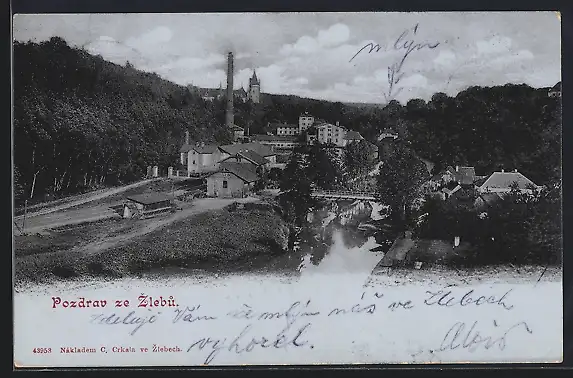 mlýn
Pozdrav ze Žlebů.
Zděluji Vám že mlýn náš ve Žlebech
vyhořel. Alois
43953 Nákladem C. Crkala ve Žlebech.